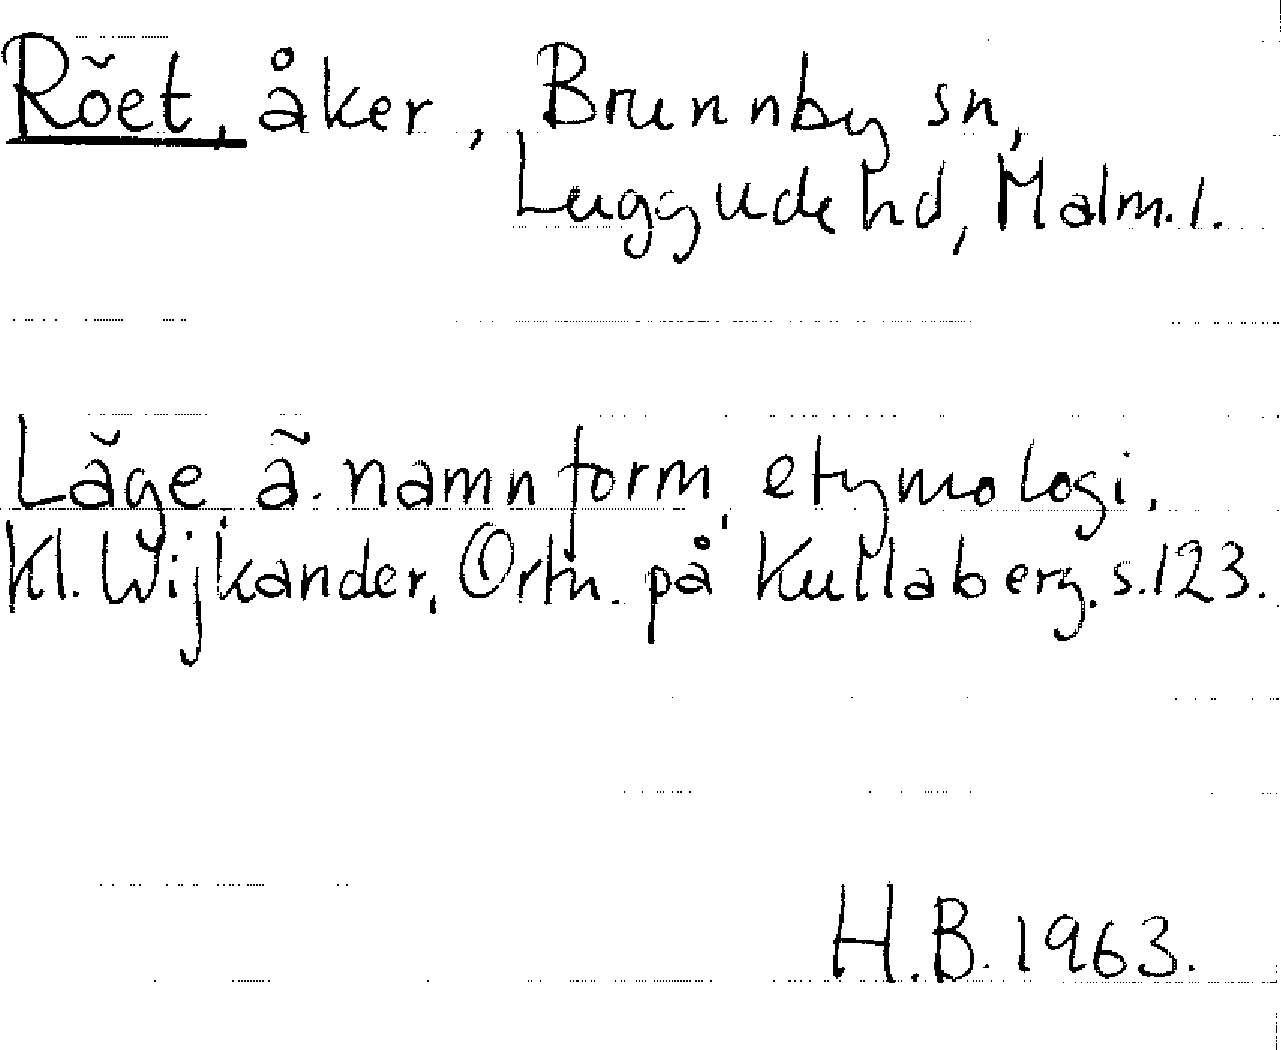 Röet, åker, Brunnby sn,
Luggude hd, Malm. l.
Läge ä. namnform, etymologi.
Kl. Wijkander, Ortn. på Kullaberg. s. 123.
H.B. 1963.